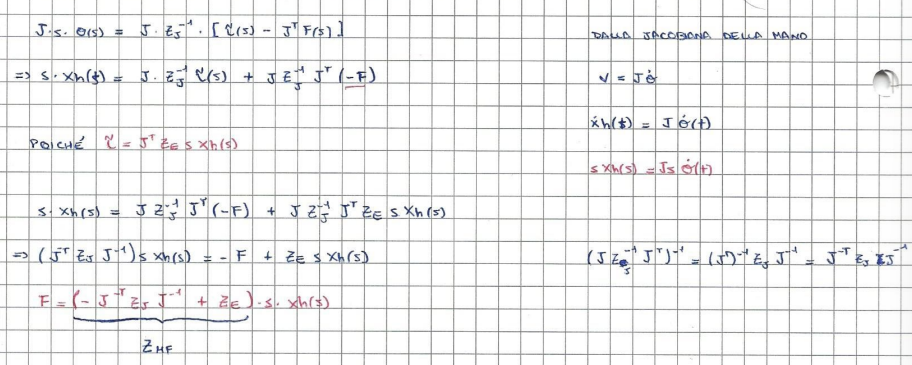 J·s· Θ(s) = J· Z_J^-1 · [ τ̃(s) - J^T F(s) ]
=> s· Xh(s) = J· Z_J^-1 τ̃(s) + J Z_J^-1 J^T (-F)
POICHÉ τ̃ = J^T Z_E s Xh(s)
s· Xh(s) = J Z_J^-1 J^T (-F) + J Z_J^-1 J^T Z_E s Xh(s)
=> (J^-T Z_J J^-1) s Xh(s) = - F + Z_E s Xh(s)
F = (- J^-T Z_J J^-1 + Z_E) · s· Xh(s)
Z_HF
DALLA JACOBIANA DELLA MANO
V = J θ̇
ẋh(t) = J θ̇(t)
s Xh(s) = Js θ̇(t)
(J Z_J^-1 J^T)^-1 = (J^T)^-1 Z_J J^-1 = J^-T Z_J J^-1